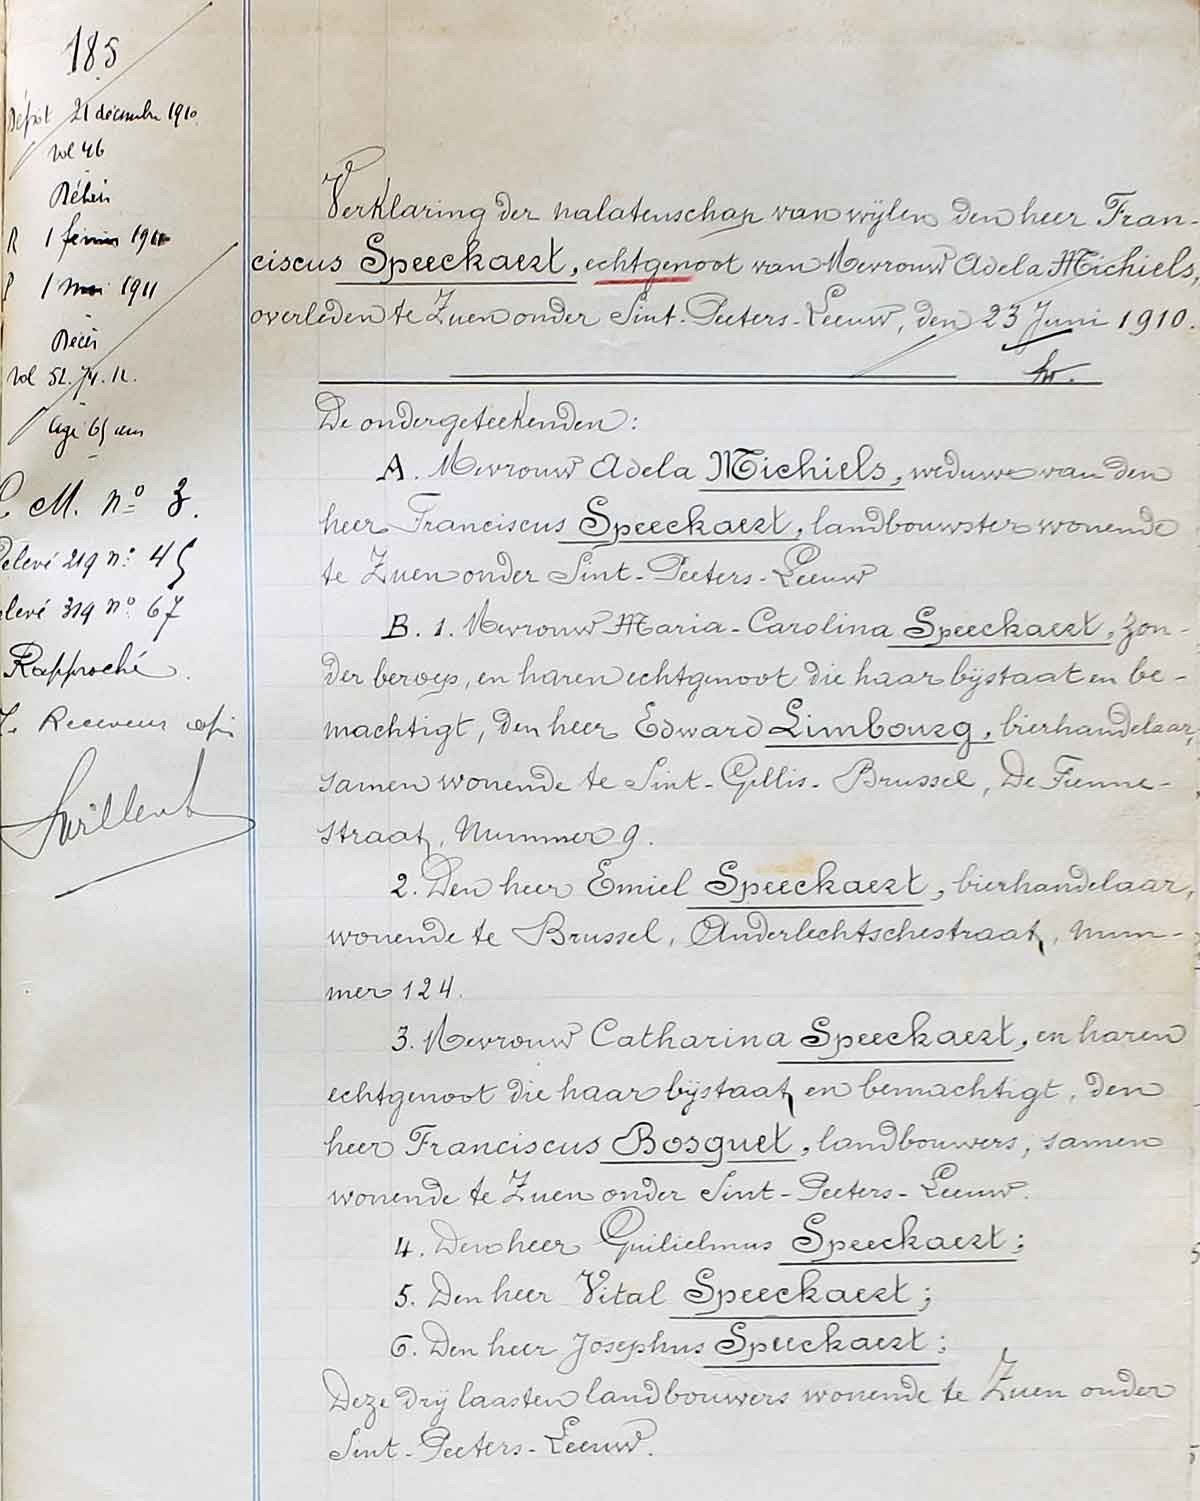 185
Dépôt 21 décembre 1910
vol 46
R 1 février 1911
1 mai 1911
Décès
Vol 52.74.12.
âgé 65 ans
M. nº 3.
elevé 219 nº 45
elevé 319 nº 67
Rapproché.
Receveur
Verklaring der nalatenschap van wijlen den heer Fran-
ciscus Speeckaert, echtgenoot van Mevrouw Adela Michiels,
overleden te Zuen onder Sint-Peeters-Leeuw, den 23 Juni 1910.
De ondergeteekenden:
A. Mevrouw Adela Michiels, weduwe van den
heer Franciscus Speeckaert, landbouwster wonende
te Zuen onder Sint-Peeters-Leeuw
B. 1. Mevrouw Maria-Carolina Speeckaert, zon-
der beroep, en haren echtgenoot die haar bijstaat en be-
machtigt, den heer Edward Limbourg, bierhandelaar,
samen wonende te Sint-Gillis-Brussel, De Fienne-
straat, Nummer 9.
2. Den heer Emiel Speeckaert, bierhandelaar,
wonende te Brussel, Anderlechtschestraat, Num-
mer 124.
3. Mevrouw Catharina Speeckaert, en haren
echtgenoot die haar bijstaat en bemachtigt, den
heer Franciscus Bosquet, landbouwers, samen
wonende te Zuen onder Sint-Peeters-Leeuw.
4. Den heer Guilielmus Speeckaert;
5. Den heer Vital Speeckaert;
6. Den heer Josephus Speeckaert;
Deze drij laasten landbouwers wonende te Zuen onder
Sint-Peeters-Leeuw.